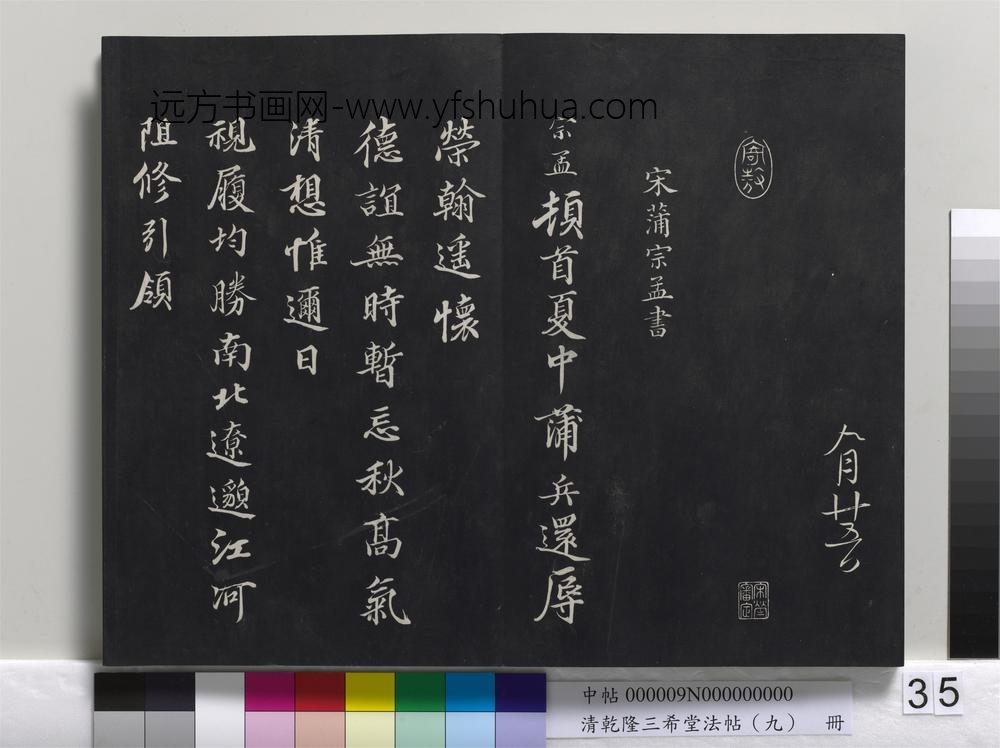 远方书画网-www.yfshuhua.com
八月廿五日
宋蒲宗孟書
宗孟頓首夏中蒲兵還辱
榮翰遥懷
德誼無時暫忘秋高氣
清想惟邇日
視履均勝南北遼邈江河
阻修引領
宋犖審定
中帖 000009N000000000
清乾隆三希堂法帖（九） 冊
35